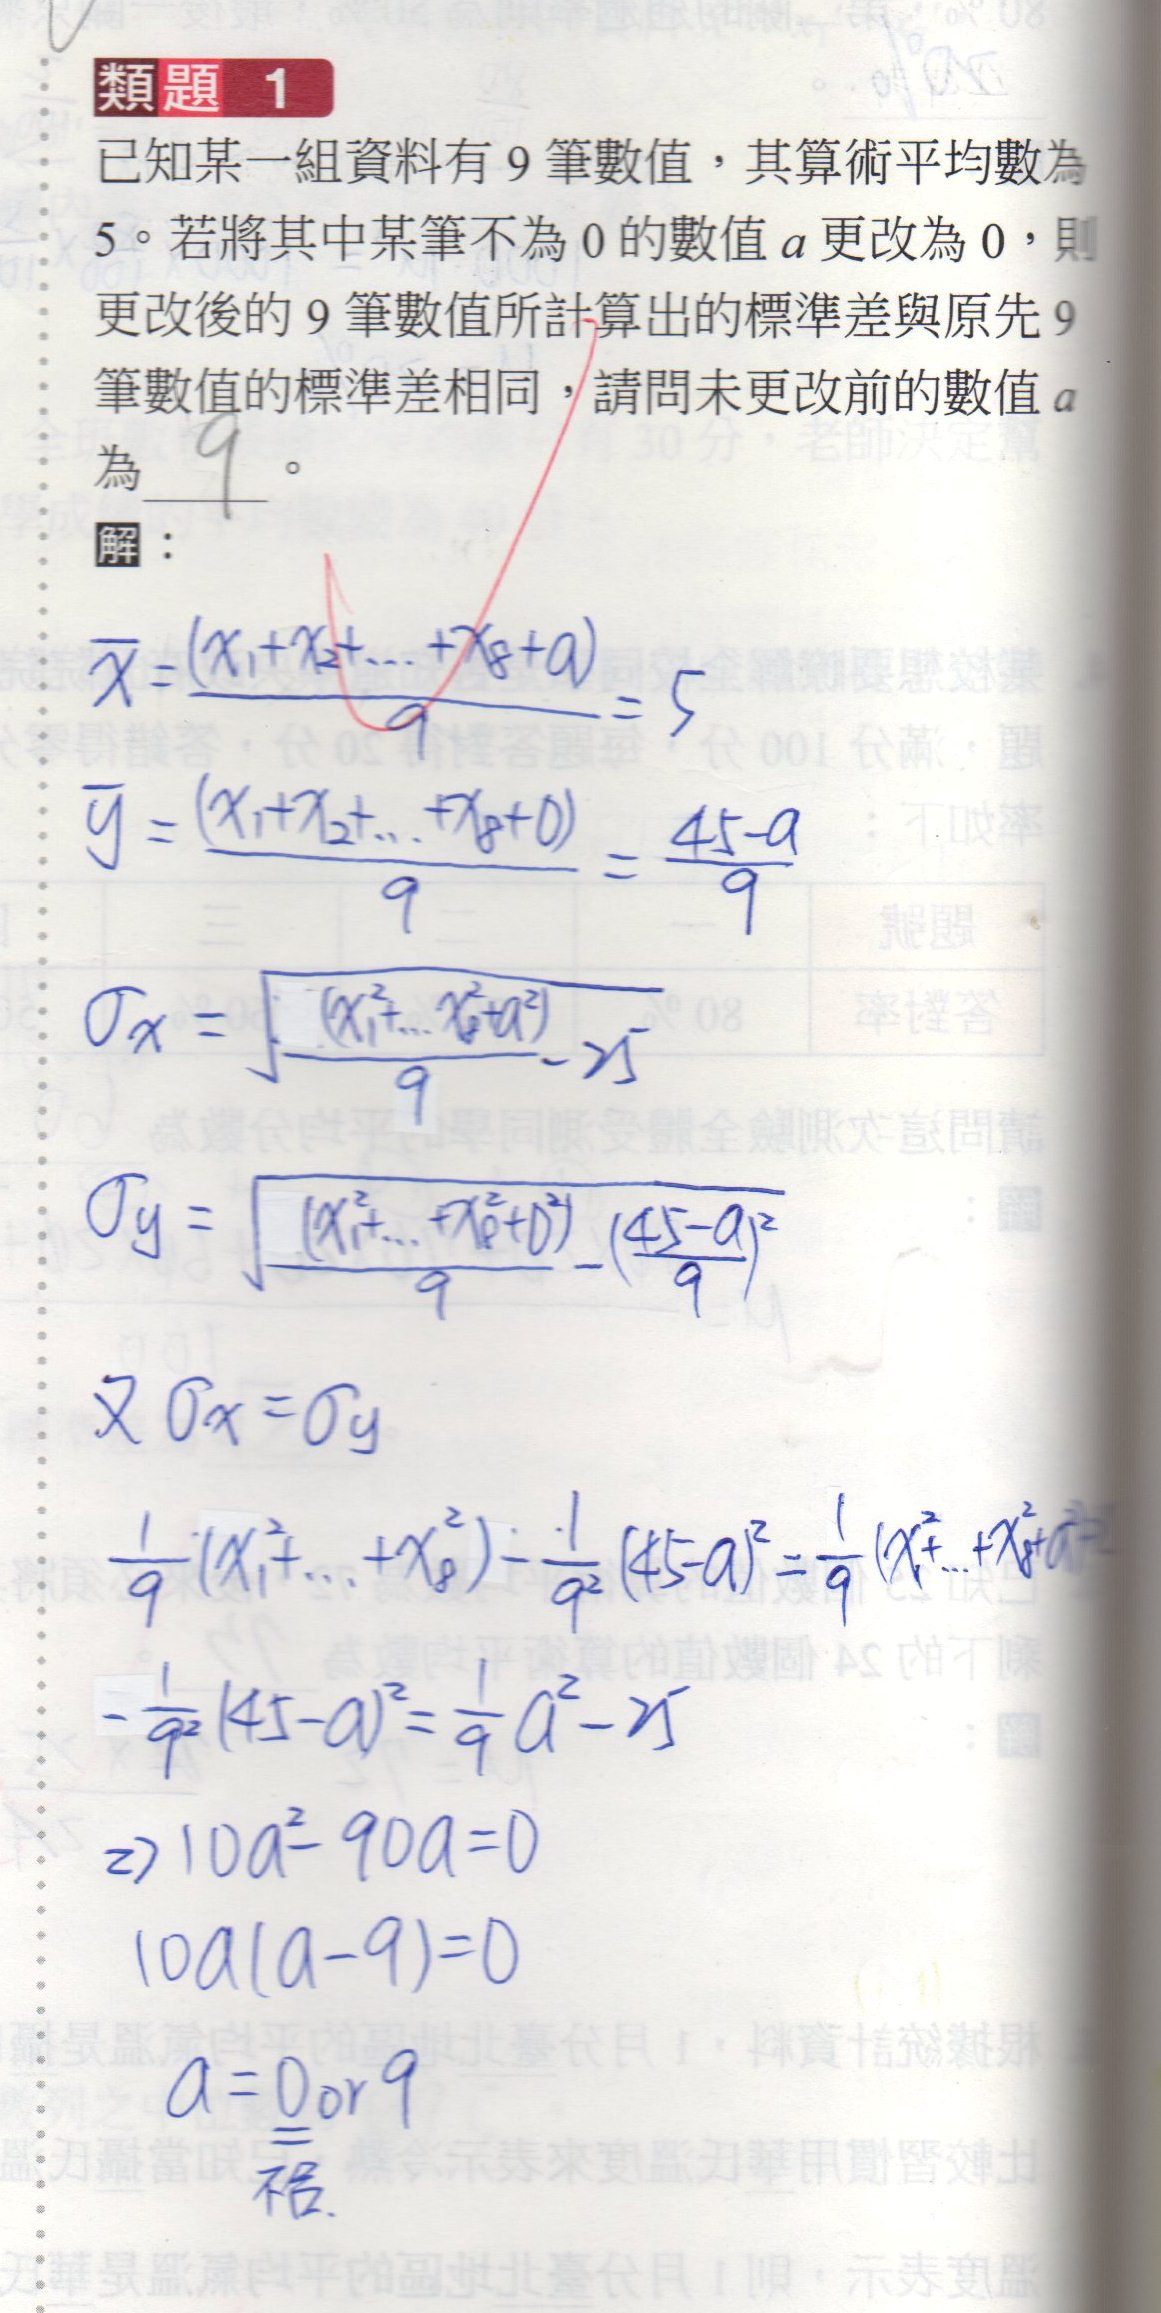 類題 1
已知某一組資料有 9 筆數值，其算術平均數為
5。若將其中某筆不為 0 的數值 a 更改為 0，則
更改後的 9 筆數值所計算出的標準差與原先 9
筆數值的標準差相同，請問未更改前的數值 a
為 9 。
解：
x̄ = (x₁+x₂+...+x₈+a)/9 = 5
ȳ = (x₁+x₂+...+x₈+0)/9 = (45-a)/9
σx = √((x₁²+...x₈²+a²)/9 - 25)
σy = √((x₁²+...+x₈²+0²)/9 - ((45-a)/9)²)
又 σx = σy
1/9 (x₁²+...+x₈²) - 1/9² (45-a)² = 1/9 (x₁²+...+x₈²+a²)-
- 1/9² (45-a)² = 1/9 a² - 25
=> 10a² - 90a = 0
10a(a-9) = 0
a = 0 or 9
不合.